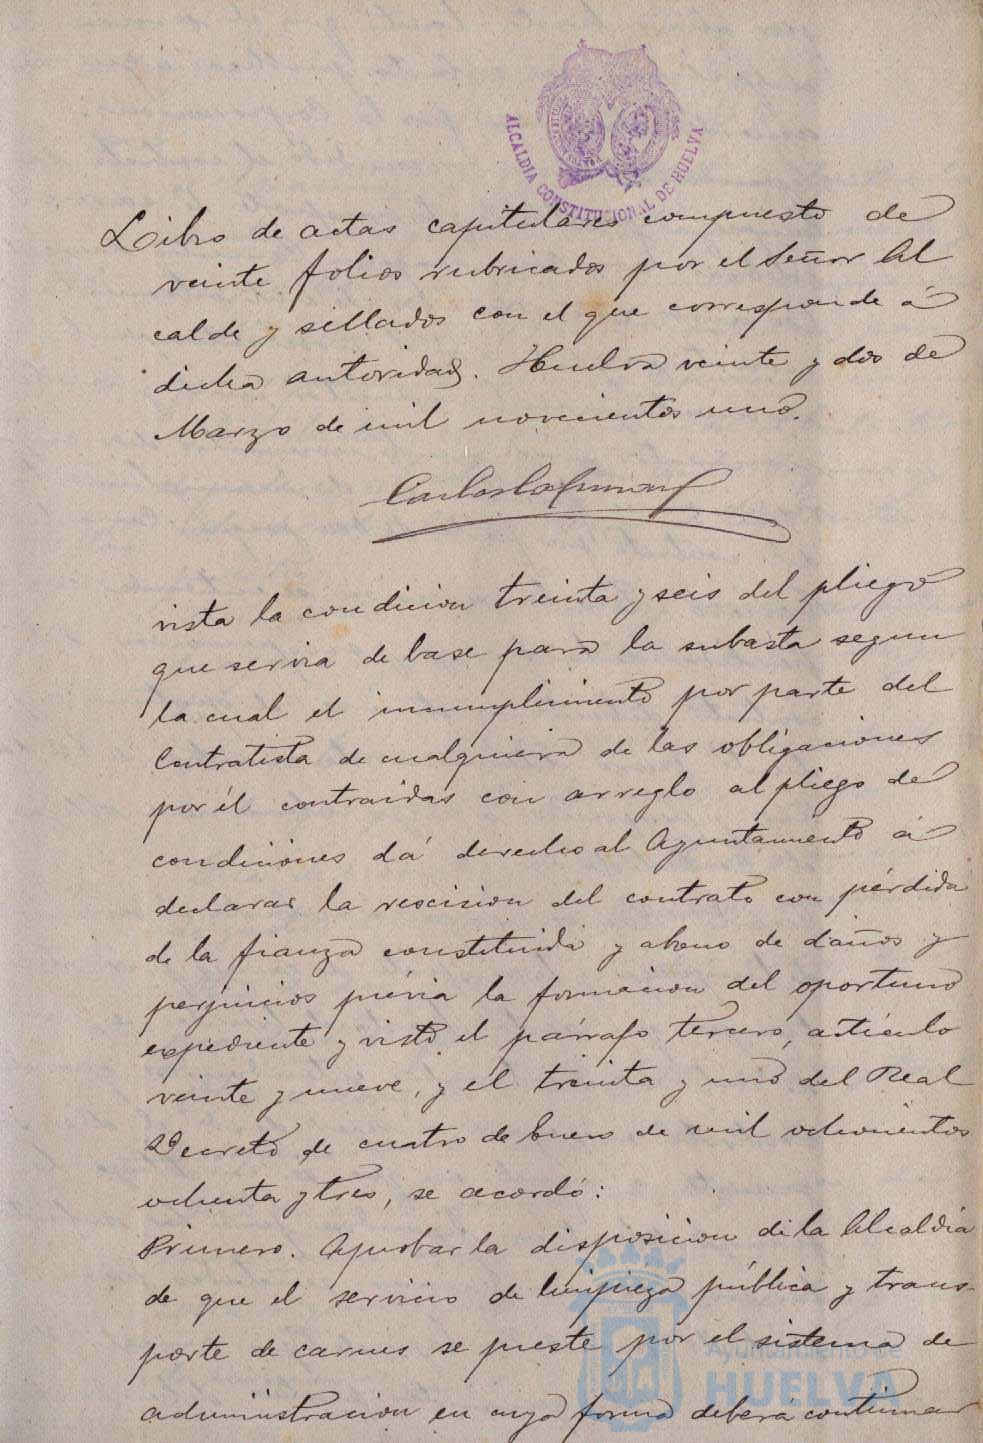 ALCALDIA CONSTITUCIONAL DE HUELVA
Libro de actas capitulares compuesto de
veinte folios rubricados por el Señor Al
calde y sellados con el que corresponde á
dicha autoridad. Huelva veinte y dos de
Marzo de mil novecientos uno.
vista la condicion treinta y seis del pliego
que servia de base para la subasta segun
la cual el incumplimiento por parte del
Contratista de cualquiera de las obligaciones
por él contraidas con arreglo al pliego de
condiciones dá derecho al Ayuntamiento á
declarar la rescision del contrato con pérdida
de la fianza constituida y abono de daños y
perjuicios prévia la formacion del oportuno
expediente y visto el párrafo tercero, artículo
veinte y nueve, y el treinta y uno del Real
Decreto de cuatro de Enero de mil ochocientos
ochenta y tres, se acordó:
Primero. Aprobar la disposicion de la Alcaldia
de que el servicio de limpieza pública y trans-
porte de carnes se preste por el sistema de
administracion en cuya forma deberá continuar
Ayuntamiento de
HUELVA